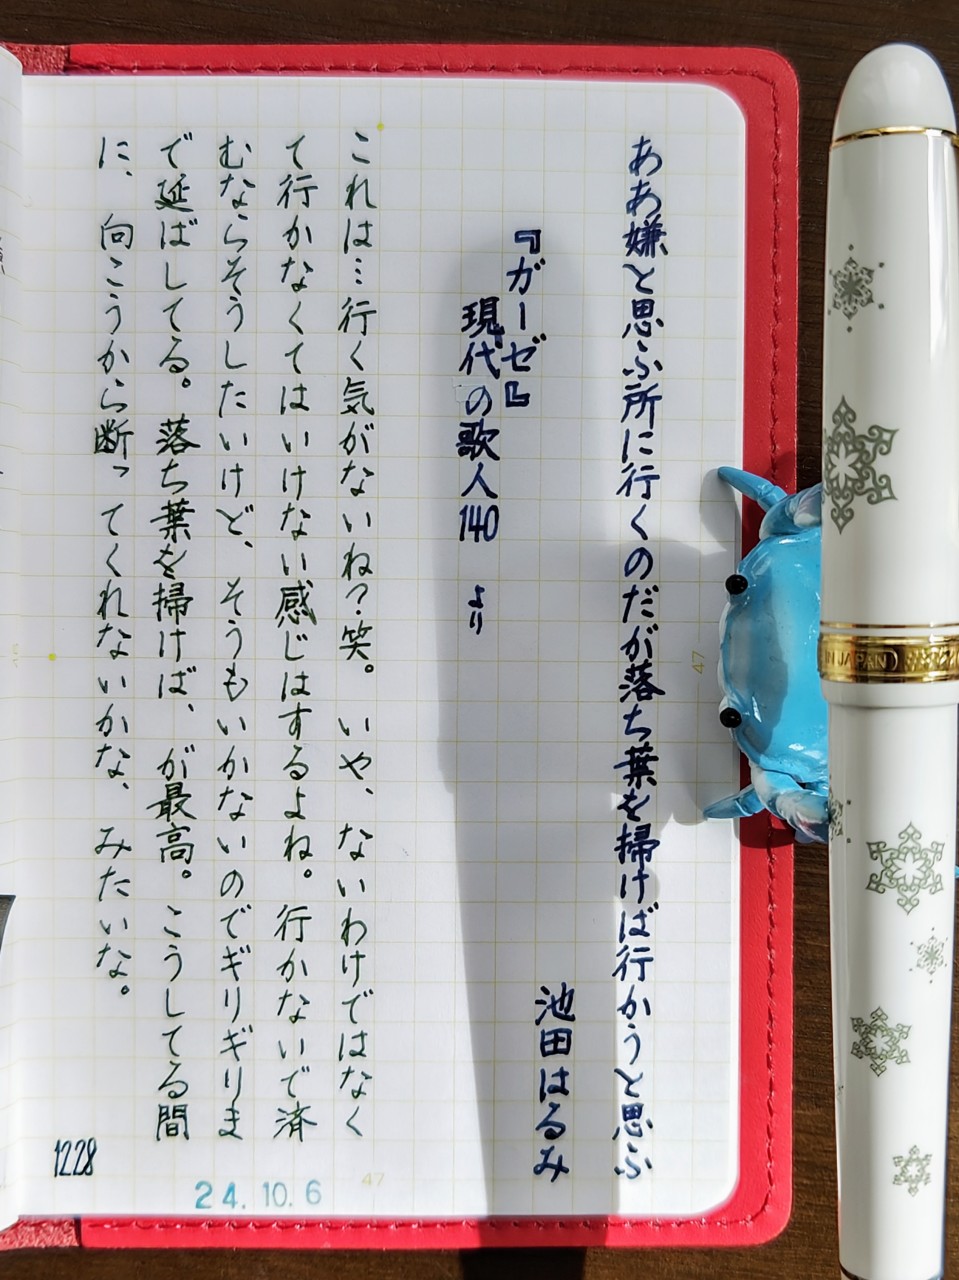 ああ嫌と思ふ所に行くのだが落ち葉を掃けば行かうと思ふ
池田はるみ
『ガーゼ』
現代の歌人140 より
これは…行く気がないね？笑。いや、ないわけではなく
て行かなくてはいけない感じはするよね。行かないで済
むならそうしたいけど、そうもいかないのでギリギリま
で延ばしてる。落ち葉を掃けば、が最高。こうしてる間
に、向こうから断ってくれないかな、みたいな。
1228
24.10.6
47
47
IN JAPAN